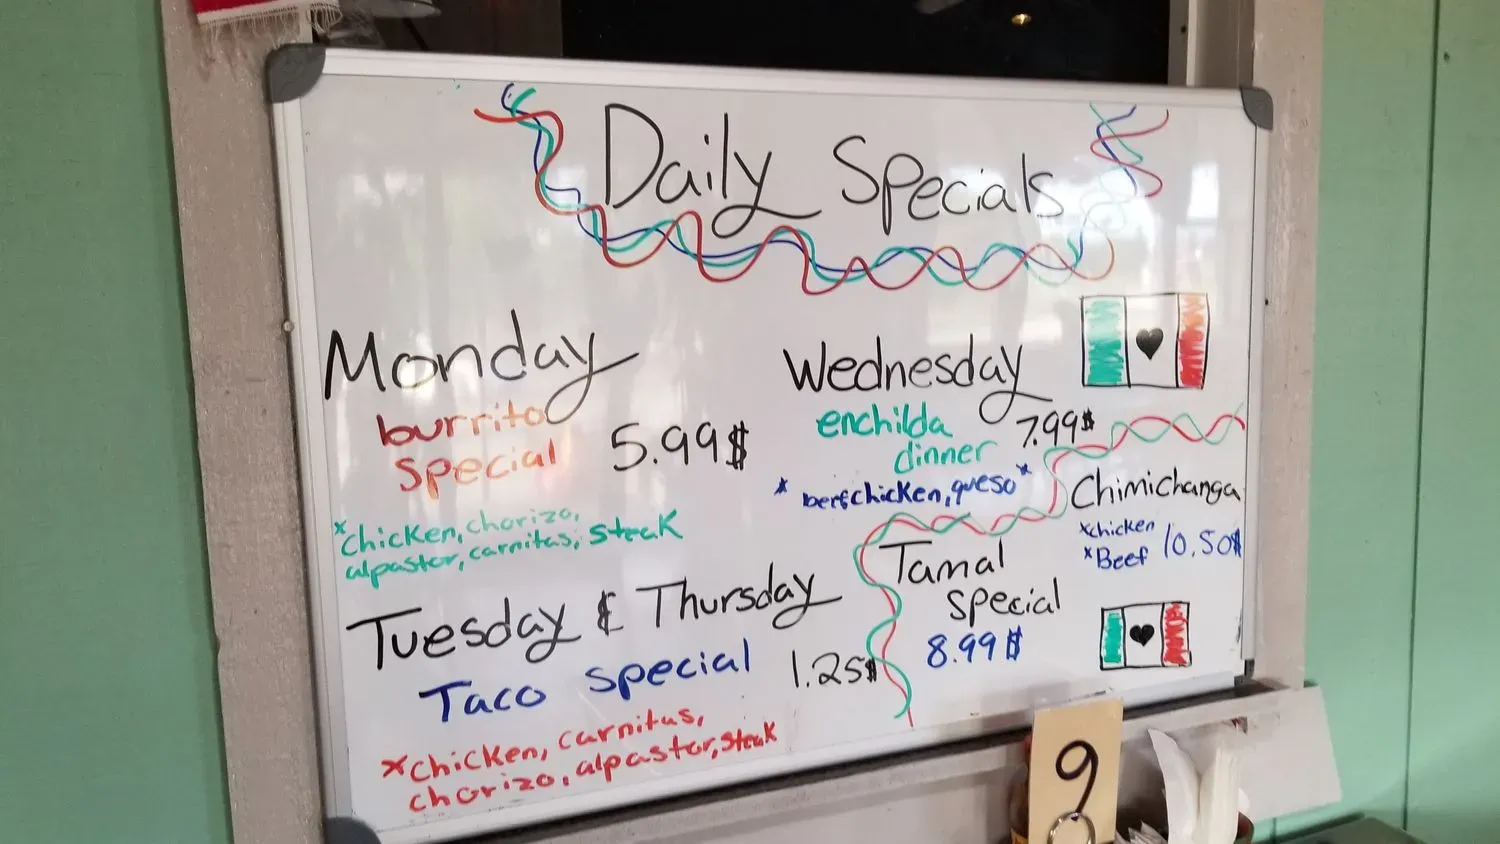 Daily Specials
Monday
burrito
special 5.99$
*chicken, chorizo,
alpastor, carnitas, steak
Tuesday & Thursday
Taco special 1.25$
*chicken, carnitas,
chorizo, alpastor, steak
Wednesday
enchilda
dinner 7.99$
* chicken, queso *
Chimichanga
*chicken
*Beef 10.50$
Tamal
special
8.99$
9